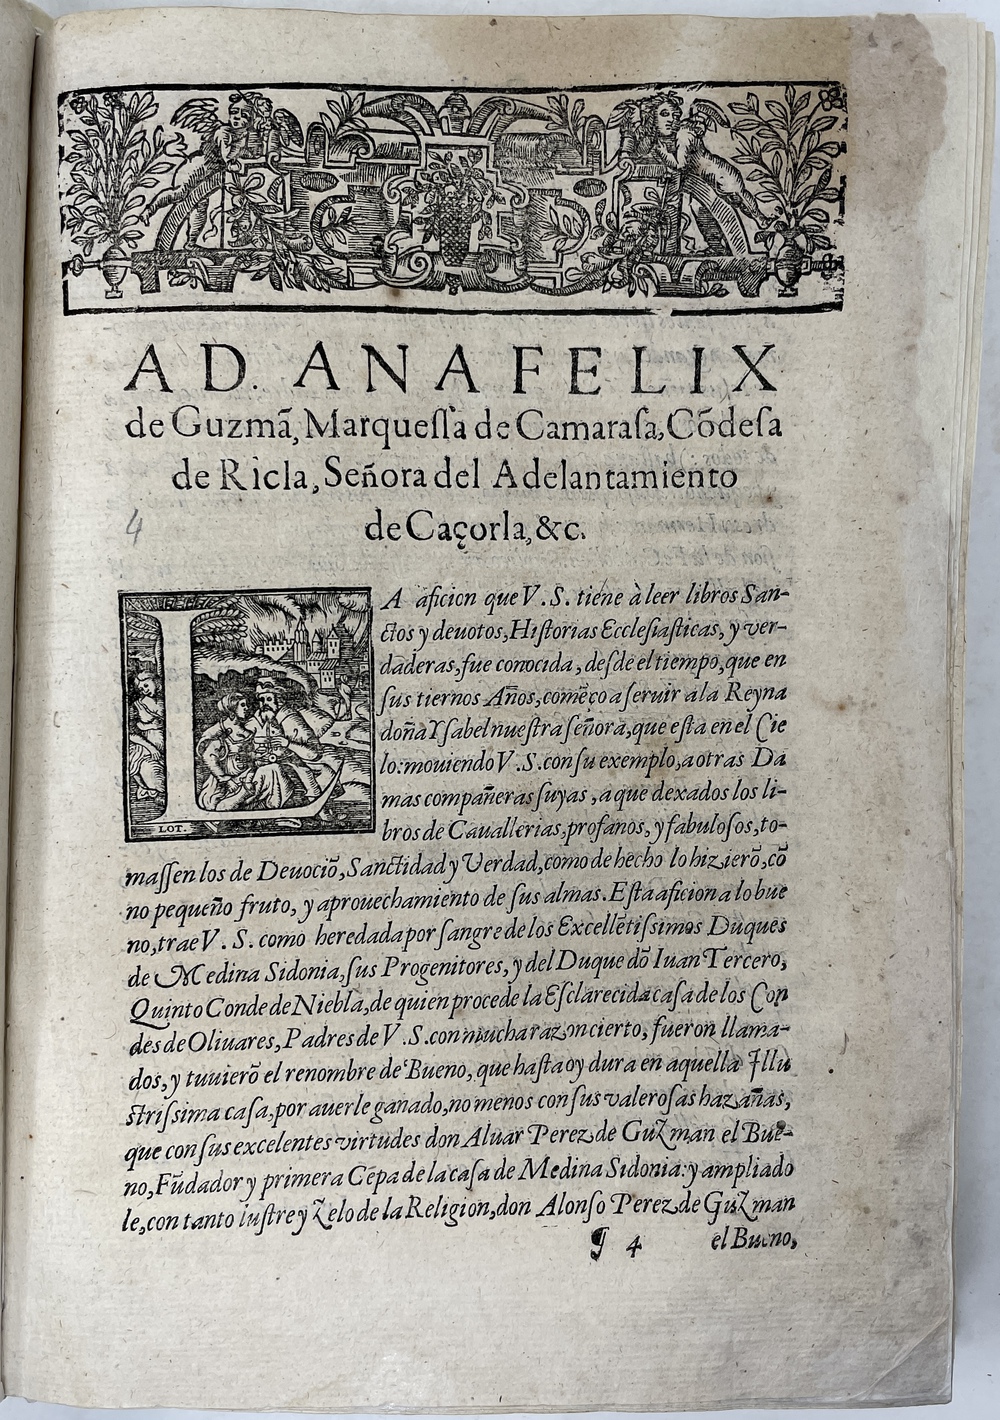 A D. ANA FELIX
de Guzmã, Marquessa de Camarasa, Cõdesa
de Ricla, Señora del Adelantamiento
de Caçorla, &c.
4
LA aficion que V. S. tiene à leer libros San-
ctos y deuotos, Historias Ecclesiasticas, y ver-
daderas, fue conocida, desde el tiempo, que en
sus tiernos Años, començo a seruir a la Reyna
doña Ysabel nuestra señora, que esta en el Cie
lo: mouiendo V. S. con su exemplo, a otras Da
mas compañeras suyas, a que dexados los li-
bros de Cauallerias, profanos, y fabulosos, to-
LOT.
massen los de Deuociõ, Sanctidad y Verdad, como de hecho lo hizierõ, cõ
no pequeño fruto, y aprouechamiento de sus almas. Esta aficion a lo bue
no, trae V. S. como heredada por sangre de los Excellẽtissimos Duques
de Medina Sidonia, sus Progenitores, y del Duque dõ Iuan Tercero,
Quinto Conde de Niebla, de quien procede la Esclarecida casa de los Con
des de Oliuares, Padres de V. S. con mucha razon cierto, fueron llama-
dos, y tuuierõ el renombre de Bueno, que hasta oy dura en aquella Illu
strissima casa, por auerle ganado, no menos con sus valerosas hazañas,
que con sus excelentes virtudes don Aluar Perez de Guzman el Bue-
no, Fũdador y primera Cepa de la casa de Medina Sidonia: y ampliado
le, con tanto lustre y Zelo de la Religion, don Alonso Perez de Guzman
¶ 4 el Bueno,